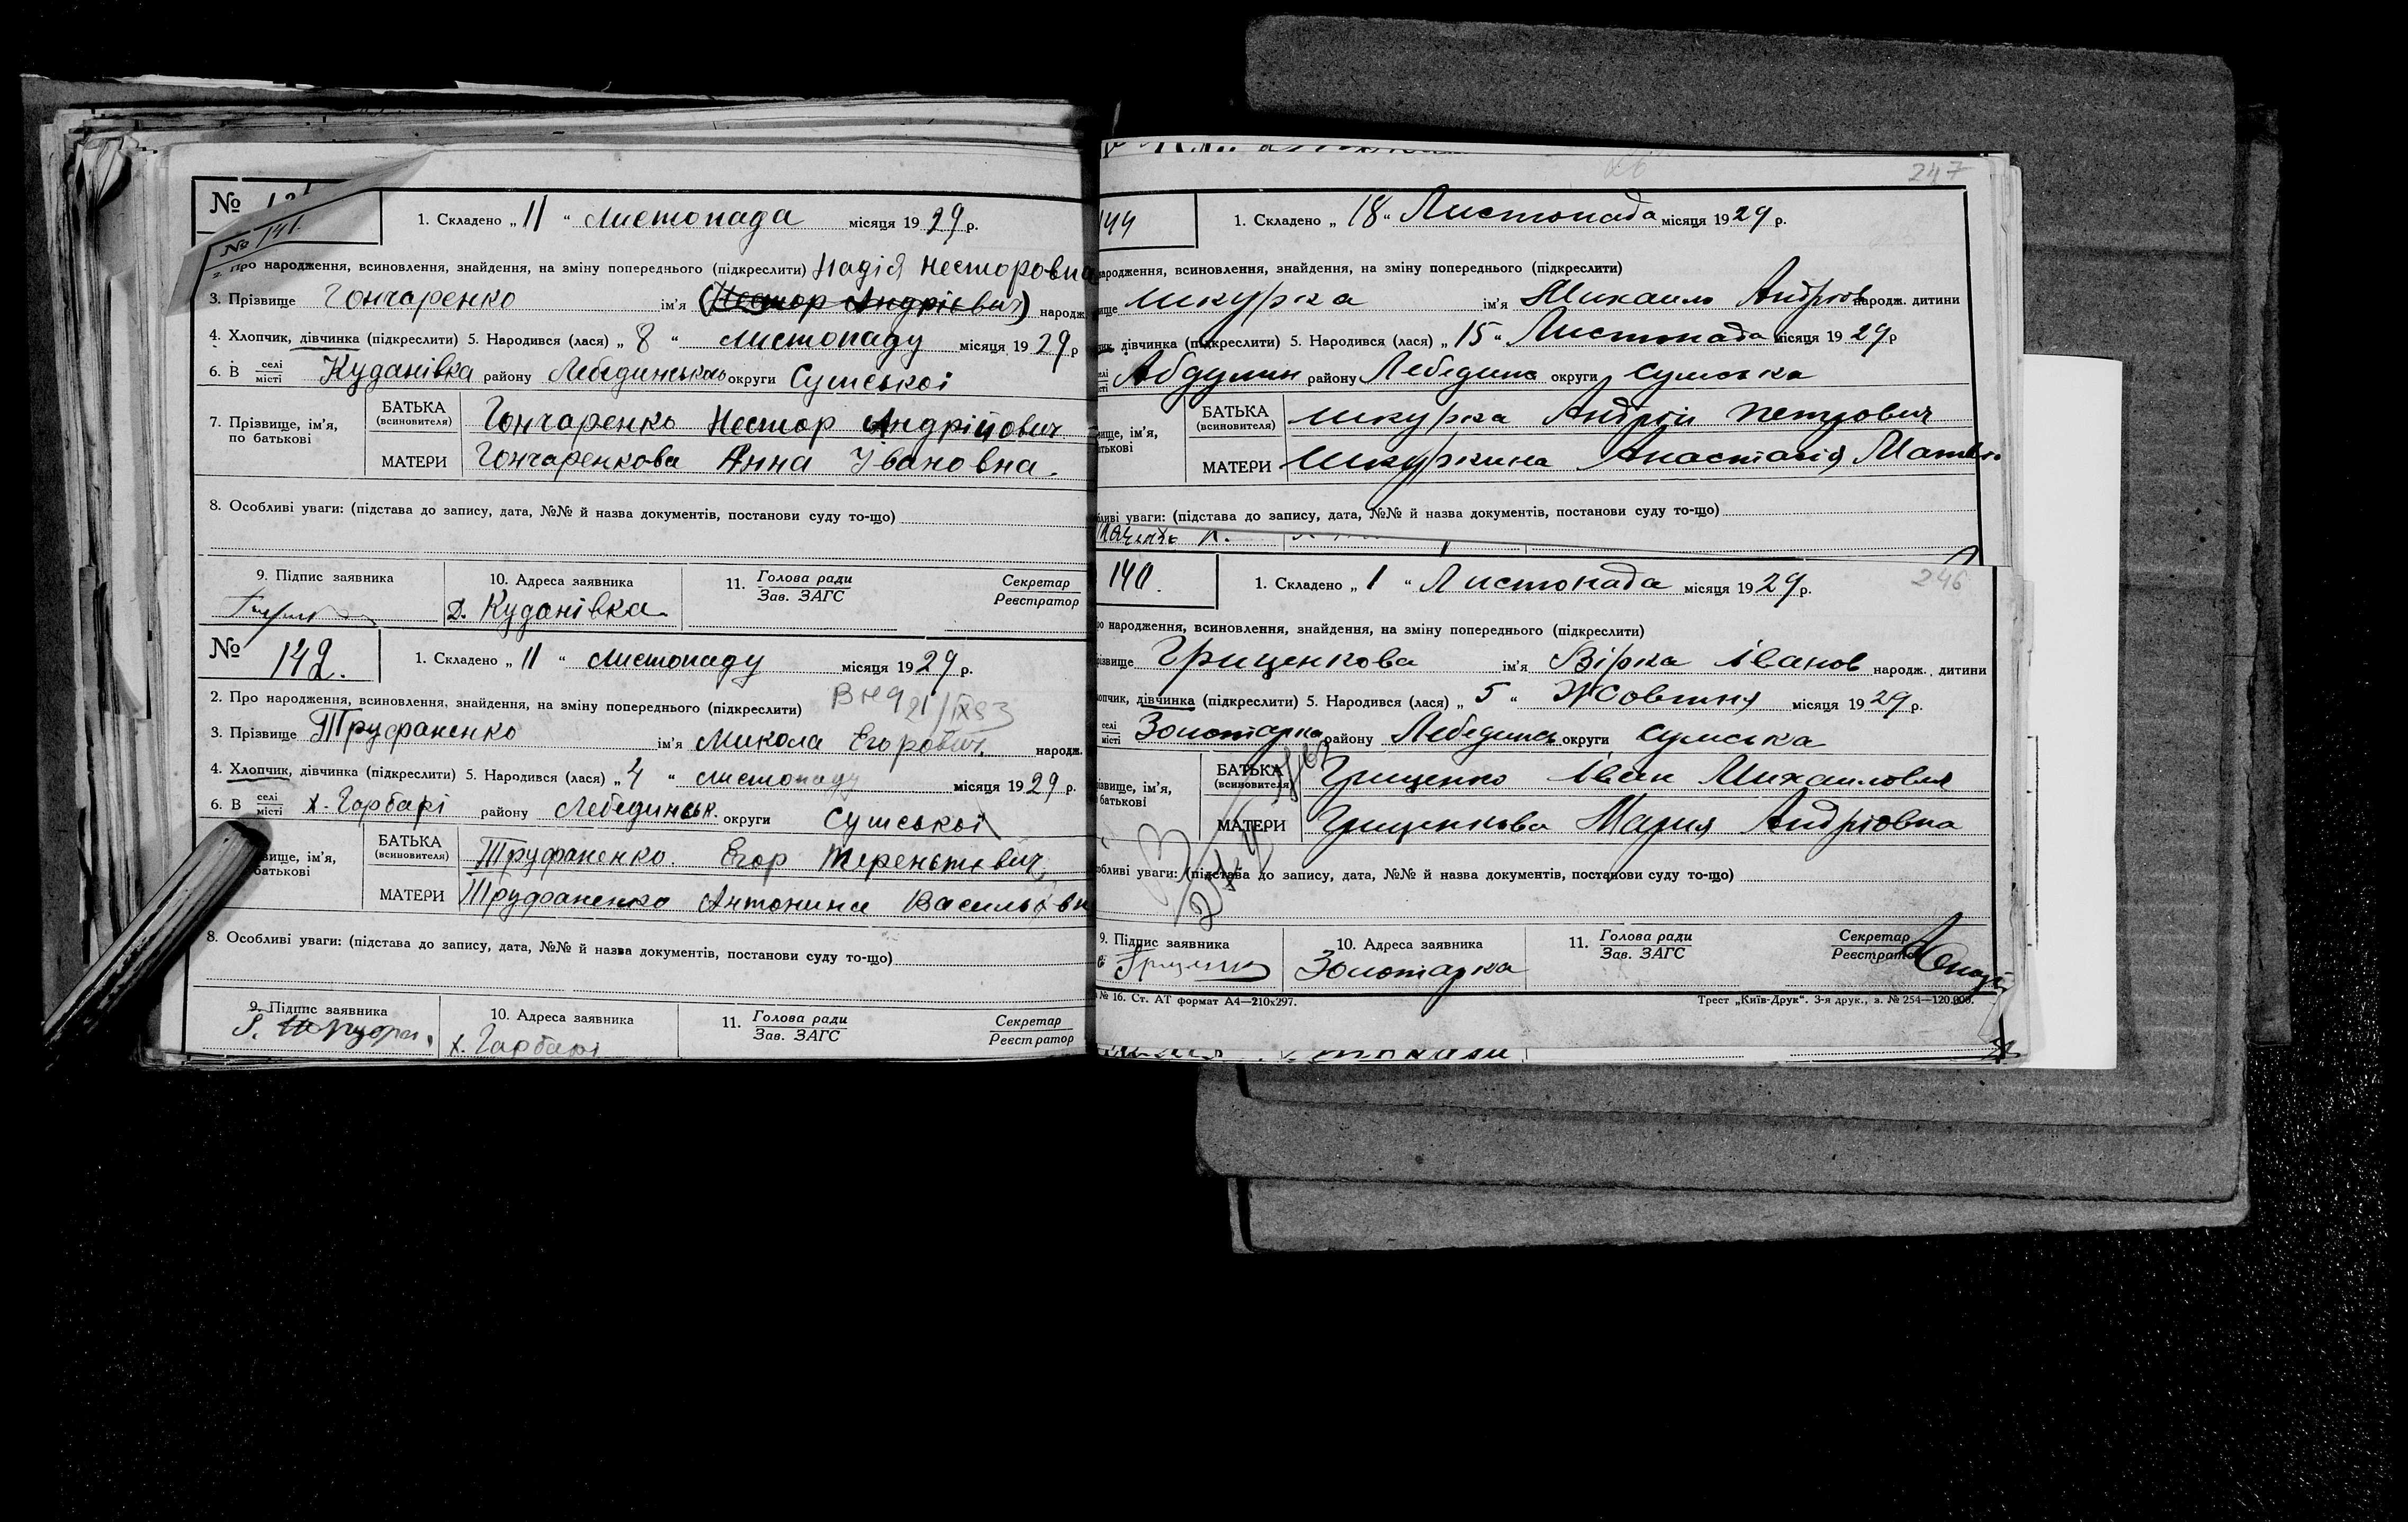 № 141.
1. Складено „ 11 “ листопада місяця 19 29 р.
2. Про народження, всиновлення, знайдення, на зміну попереднього (підкреслити) Надія Несторовна
3. Прізвище Гончаренко ім'я (Нестор Андрієвич) народж.
4. Хлопчик, дівчинка (підкреслити) 5. Народився (лася) „ 8 “ листопаду місяця 19 29 р
6. В селі місті Куданівка району Лебединського округи Сумської
7. Прізвище, ім'я, по батькові
БАТЬКА (всиновителя) Гончаренко Нестор Андрійович
МАТЕРИ Гончаренкова Анна Івановна.
8. Особливі уваги: (підстава до запису, дата, №№ й назва документів, постанови суду то-що)
9. Підпис заявника 10. Адреса заявника 11. Голова ради Зав. ЗАГС Секретар Реєстратор
Куданівка
№ 142.
1. Складено „ 11 “ листопаду місяця 19 29 р.
2. Про народження, всиновлення, знайдення, на зміну попереднього (підкреслити)
3. Прізвище Труфаненко ім'я Микола Егорович народж.
4. Хлопчик, дівчинка (підкреслити) 5. Народився (лася) „ 4 “ листопаду місяця 19 29 р.
6. В селі місті х. Гарбарі району Лебединськ. округи Сумської
вище, ім'я, батькові
БАТЬКА (всиновителя) Труфаненко. Егор Терентієвич
МАТЕРИ Труфаненко Антонина Васильівн
8. Особливі уваги: (підстава до запису, дата, №№ й назва документів, постанови суду то-що)
9. Підпис заявника 10. Адреса заявника 11. Голова ради Зав. ЗАГС Секретар Реєстратор
х. Гарбарі
247
144
1. Складено „ 18 “ Листопада місяця 19 29 р.
народження, всиновлення, знайдення, на зміну попереднього (підкреслити)
ище Шкурка ім'я Михаил Андріов народж. дитини
чик, дівчинка (підкреслити) 5. Народився (лася) „ 15 “ Листопада місяця 19 29 р
селі місті району Лебединс округи Сумська
вище, ім'я, батькові
БАТЬКА (всиновителя) Шкурка Андрій Петрович
МАТЕРИ Шкуркина Анастасія
бливі уваги: (підстава до запису, дата, №№ й назва документів, постанови суду то-що)
246
140.
1. Складено „ 1 “ Листопада місяця 19 29 р.
ро народження, всиновлення, знайдення, на зміну попереднього (підкреслити)
різвище Гриценкова ім'я Вірка Іванов народж. дитини
лопчик, дівчинка (підкреслити) 5. Народився (лася) „ 5 “ Жовтня місяця 19 29 р.
селі місті Золотарка району Лебединсь округи Сумська
ізвище, ім'я, батькові
БАТЬКА (всиновителя) Гриценко Іван Михаилович
МАТЕРИ Гриценкова Мария Андріовна
обливі уваги: (підстава до запису, дата, №№ й назва документів, постанови суду то-що)
9. Підпис заявника 10. Адреса заявника 11. Голова ради Зав. ЗАГС Секретар Реєстратор
Гриценко Золотарка
№ 16. Ст. АТ формат А4—210х297. Трест „Київ-Друк“. 3-я друк., з. № 254—120.000.